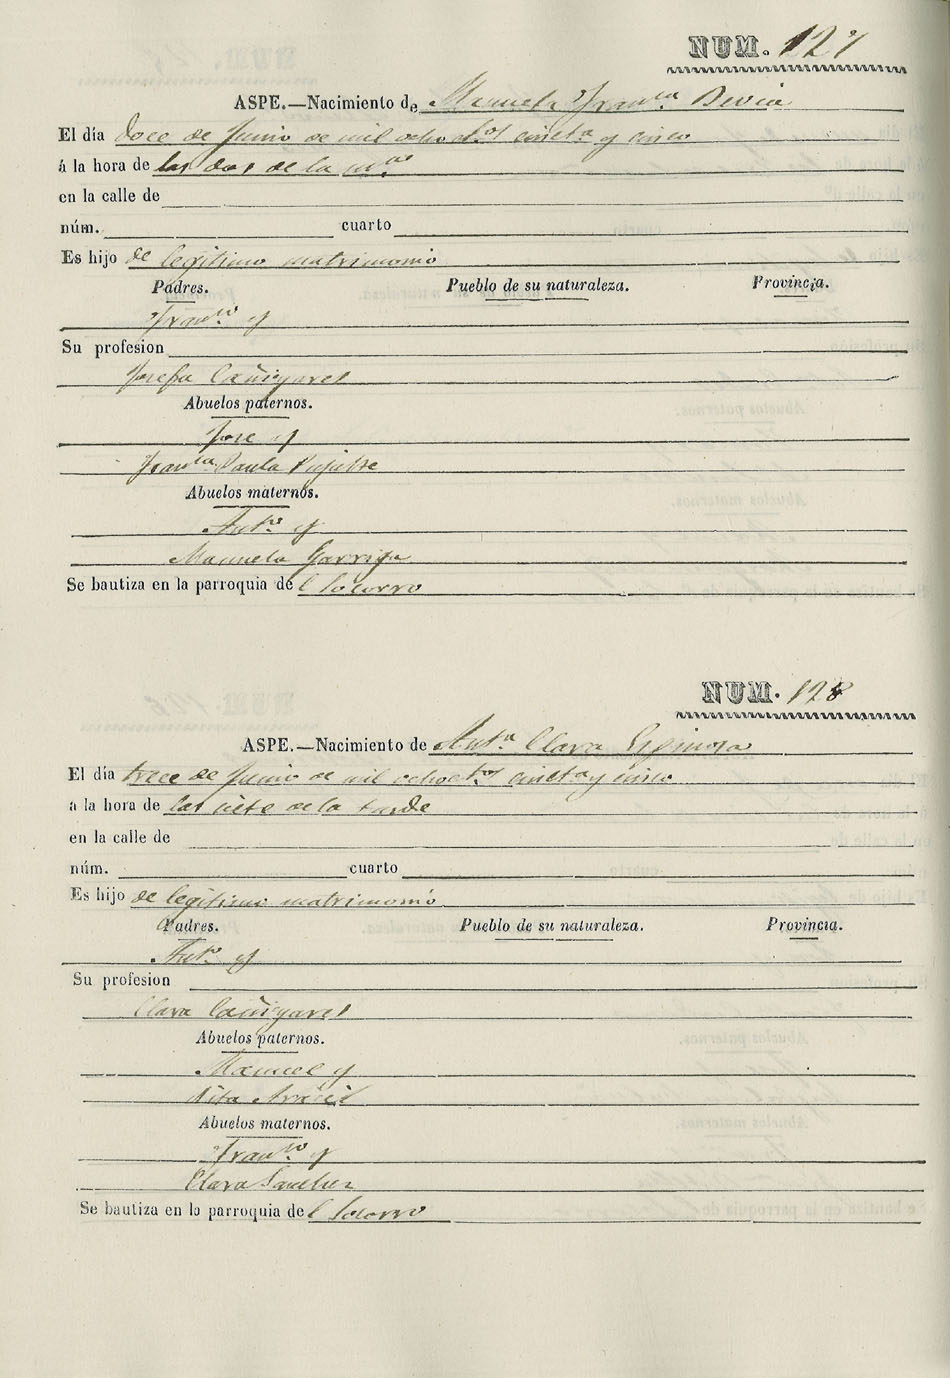 NUM. 127
ASPE.—Nacimiento de Manuela Fran.ca Devia
El día doce de Junio de mil ochoc.tos cinc.ta y cinco
á la hora de las dos de la m.na
en la calle de
núm. cuarto
Es hijo de legitimo matrimonio
Padres. Pueblo de su naturaleza. Provincia.
Fran.co y
Su profesion
Josefa Cañizares
Abuelos paternos.
Jose y
Fran.ca Paula Pujalte
Abuelos maternos.
Ant.o y
Manuela Garriga
Se bautiza en la parroquia del Socorro
NUM. 128
ASPE.—Nacimiento de Ant.a Clara Espinosa
El día trece de Junio de mil ochoc.tos cinc.ta y cinco
a la hora de las siete de la tarde
en la calle de
núm. cuarto
Es hijo de legitimo matrimonio
Padres. Pueblo de su naturaleza. Provincia.
Ant.o y
Su profesion
Clara Cañizares
Abuelos paternos.
Manuel y
Rita Aracil
Abuelos maternos.
Fran.co y
Clara Sanchez
Se bautiza en la parroquia del Socorro